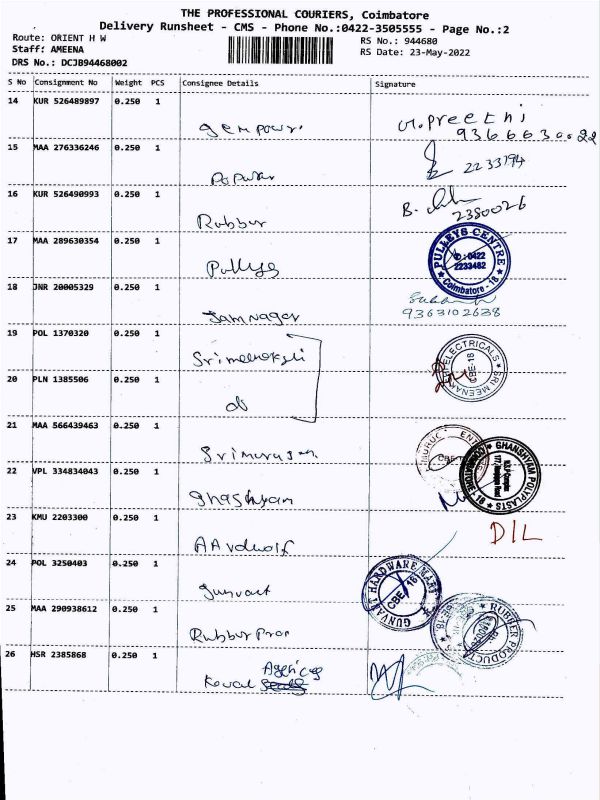 THE PROFESSIONAL COURIERS, Coimbatore
Delivery Runsheet - CMS - Phone No.:0422-3505555 - Page No.:2
Route: ORIENT H W
RS No.: 944680
Staff: AMEENA
RS Date: 23-May-2022
DRS No.: DCJB94468002
S No Consignment No Weight PCS Consignee Details Signature
14 KUR 526489897 0.250 1
M. Preethi
9366630022
15 MAA 276336246 0.250 1
Popular
2233194
16 KUR 526490993 0.250 1
Rubbur
B.
2380026
17 MAA 289630354 0.250 1
Pullys
PULLEYS CENTRE
✆:0422
2233482
Coimbatore - 18
18 JNR 20005329 0.250 1
Jamnager
9363102638
19 POL 1370320 0.250 1
ELECTRICALS SRI MEENAKSHI
CBE-18
20 PLN 1385506 0.250 1
do
21 MAA 566439463 0.250 1
Srimurugan
GHANSHYAM POLYPLASTS
COIMBATORE - 18
22 VPL 334834043 0.250 1
Ghashyam
23 KMU 2203300 0.250 1
DIL
24 POL 3250403 0.250 1
Gunvant
GUNVANT HARDWARE MART
CBE-18
25 MAA 290938612 0.250 1
Rubbur Pror
RUBBER PRODUCTS
26 HSR 2385868 0.250 1
Keval